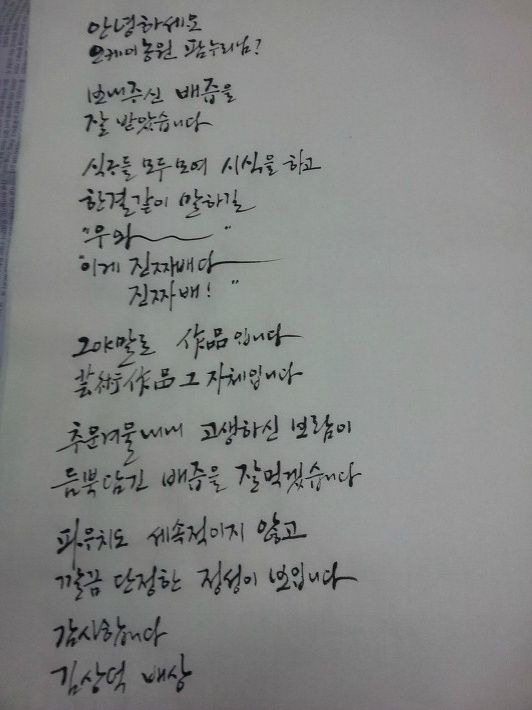 안녕하세요
오케이농원 팜누리님?
보내주신 배즙을
잘 받았습니다
식구들 모두모여 시식을 하고
한결같이 말하길
"우와~~~"
"이게 진짜배다
진짜배!"
그야말로 作品입니다
芸術作品 그 자체입니다
추운겨울내내 고생하신 보람이
듬북담긴 배즙을 잘먹겠습니다
파우치도 세속적이지 않고
깔끔 단정한 정성이 보입니다
감사합니다
김상덕 배상